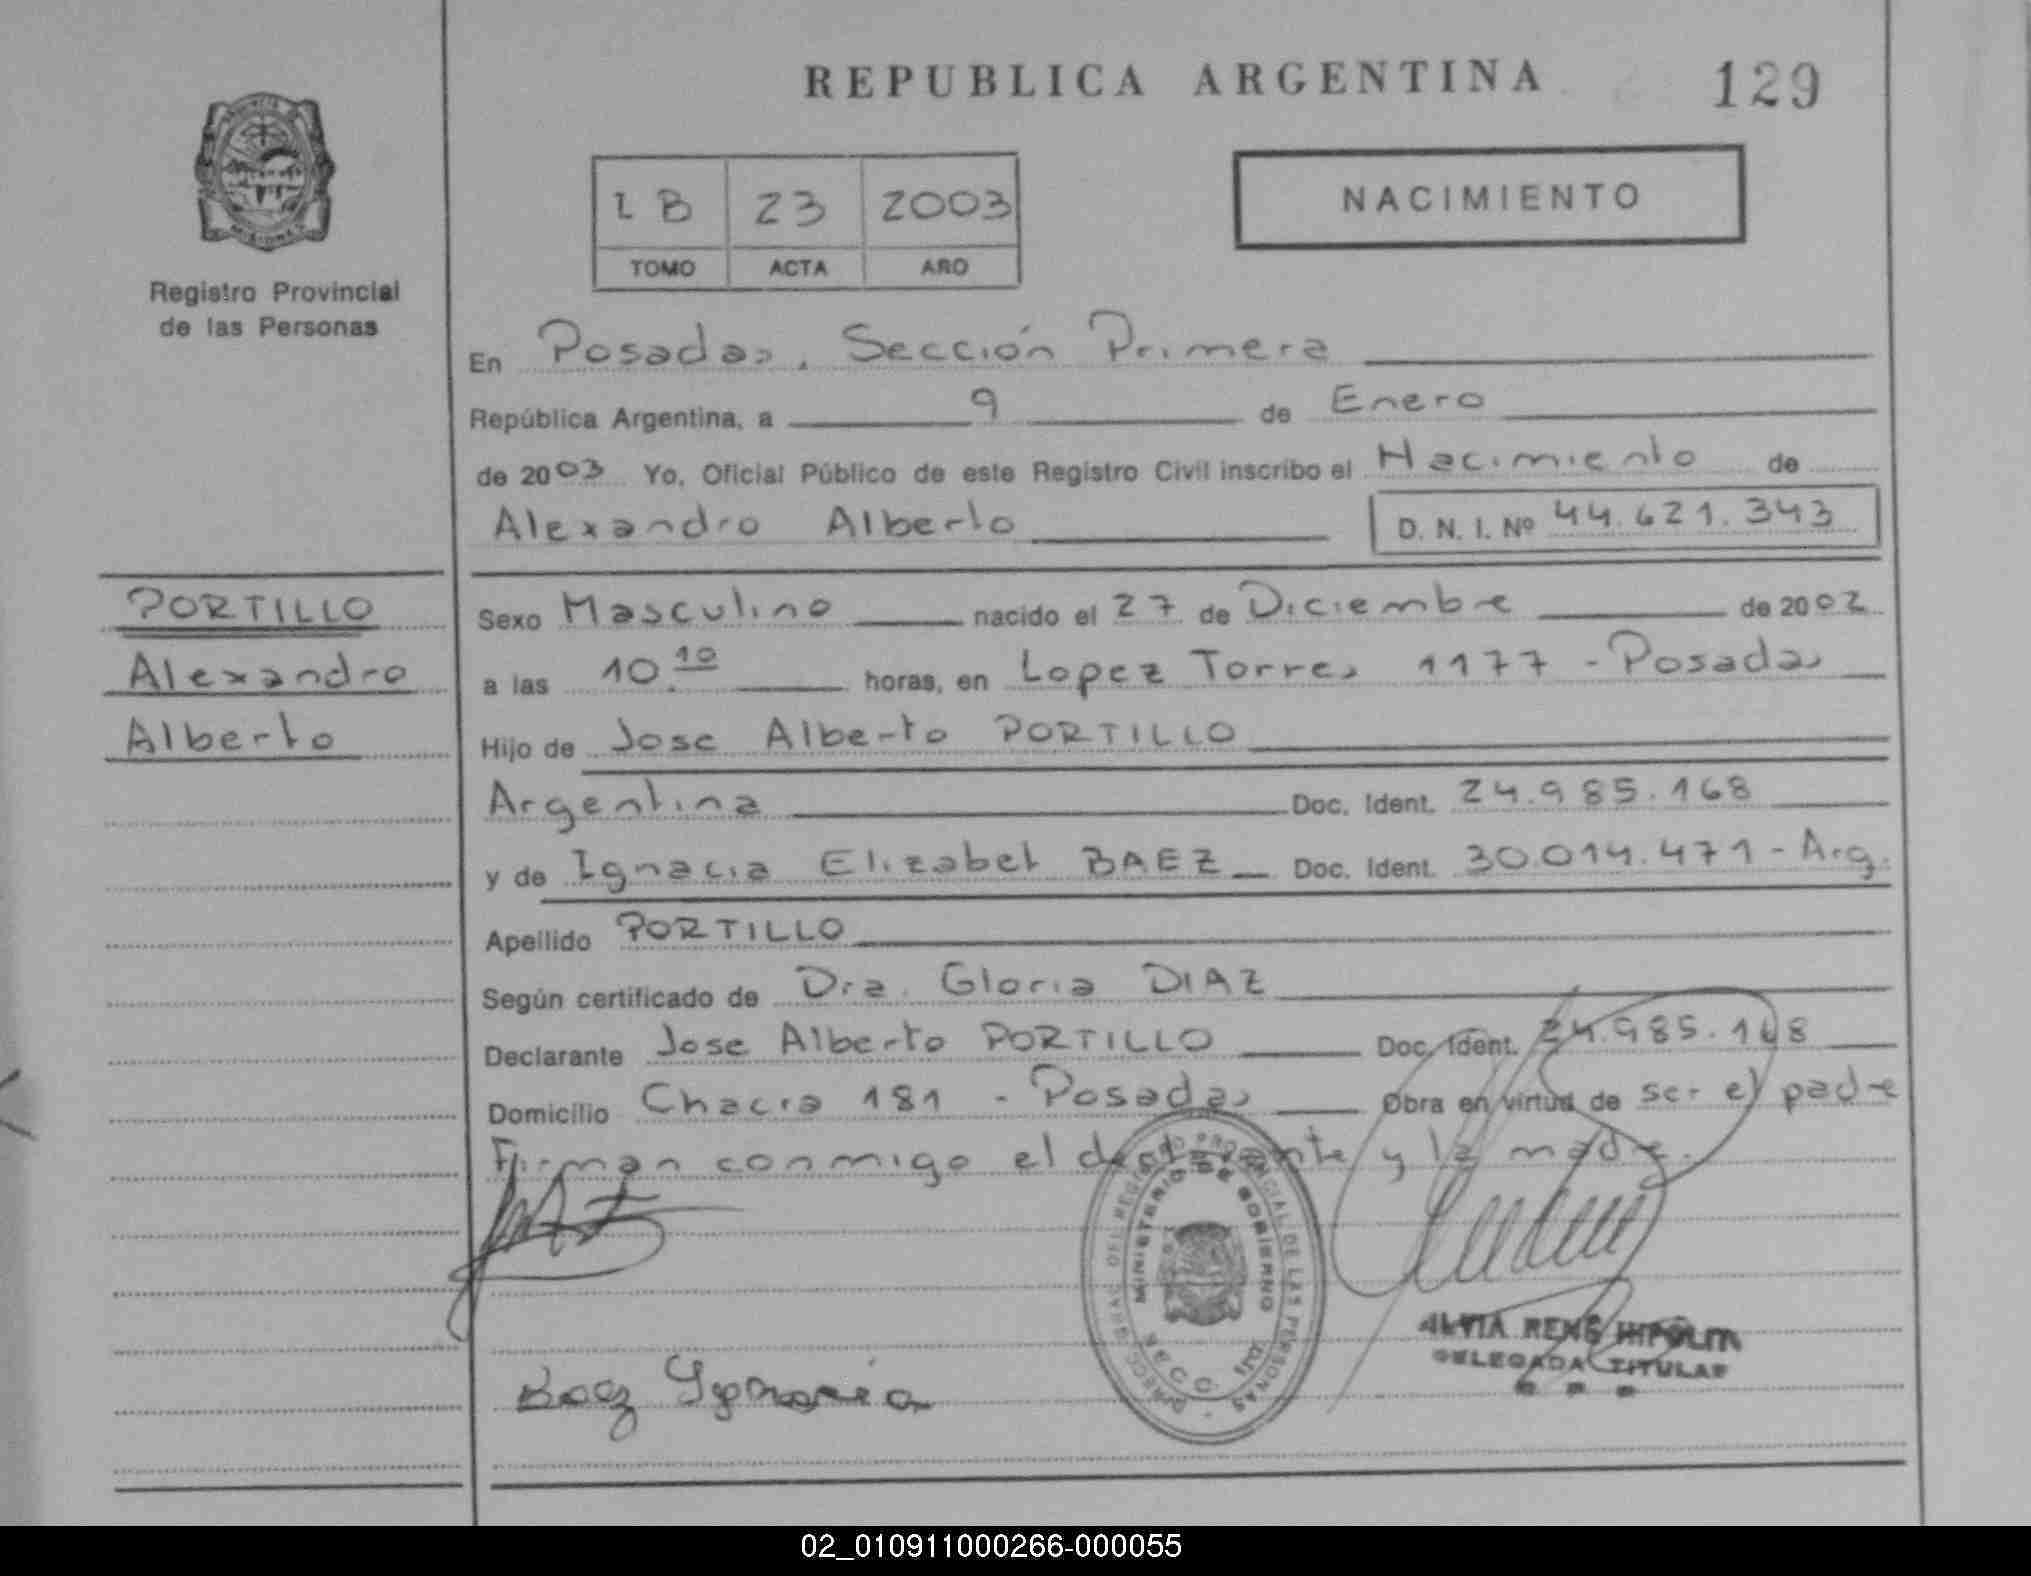 REPUBLICA ARGENTINA 129
PROVINCIA
MISIONES
Registro Provincial
de las Personas
1 B 23 2003
TOMO ACTA AÑO
NACIMIENTO
En Posadas, Sección Primera
República Argentina, a 9 de Enero
de 2003 Yo, Oficial Público de este Registro Civil inscribo el Nacimiento de
Alexandro Alberto D. N. I. Nº 44.621.343
PORTILLO
Alexandro
Alberto
Sexo Masculino nacido el 27 de Diciembre de 2002
a las 10.10 horas, en Lopez Torres 1177 - Posadas
Hijo de Jose Alberto PORTILLO
Argentina Doc. Ident. 24.985.168
y de Ignacia Elizabet BAEZ Doc. Ident. 30.014.471 - Arg.
Apellido PORTILLO
Según certificado de Dra. Gloria DIAZ
Declarante Jose Alberto PORTILLO Doc. Ident. 24.985.168
Domicilio Chacra 181 - Posadas Obra en virtud de ser el padre
Firman conmigo el declarante y la madre.
MINISTERIO DE GOBIERNO
DEL REGISTRO PROVINCIAL DE LAS PERSONAS
Baez Ygnacia
RENE HIPOLITO
DELEGADA TITULAR
02_010911000266-000055